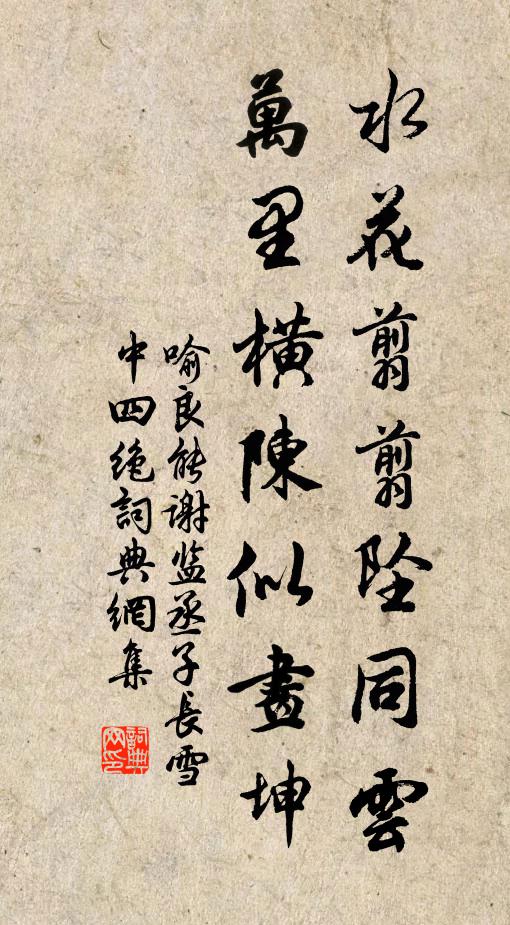 水花翦翦坠同雲
萬里橫陳似畫坤
喻良能谢监丞子長雪
中四绝詞典網集
詞典網印